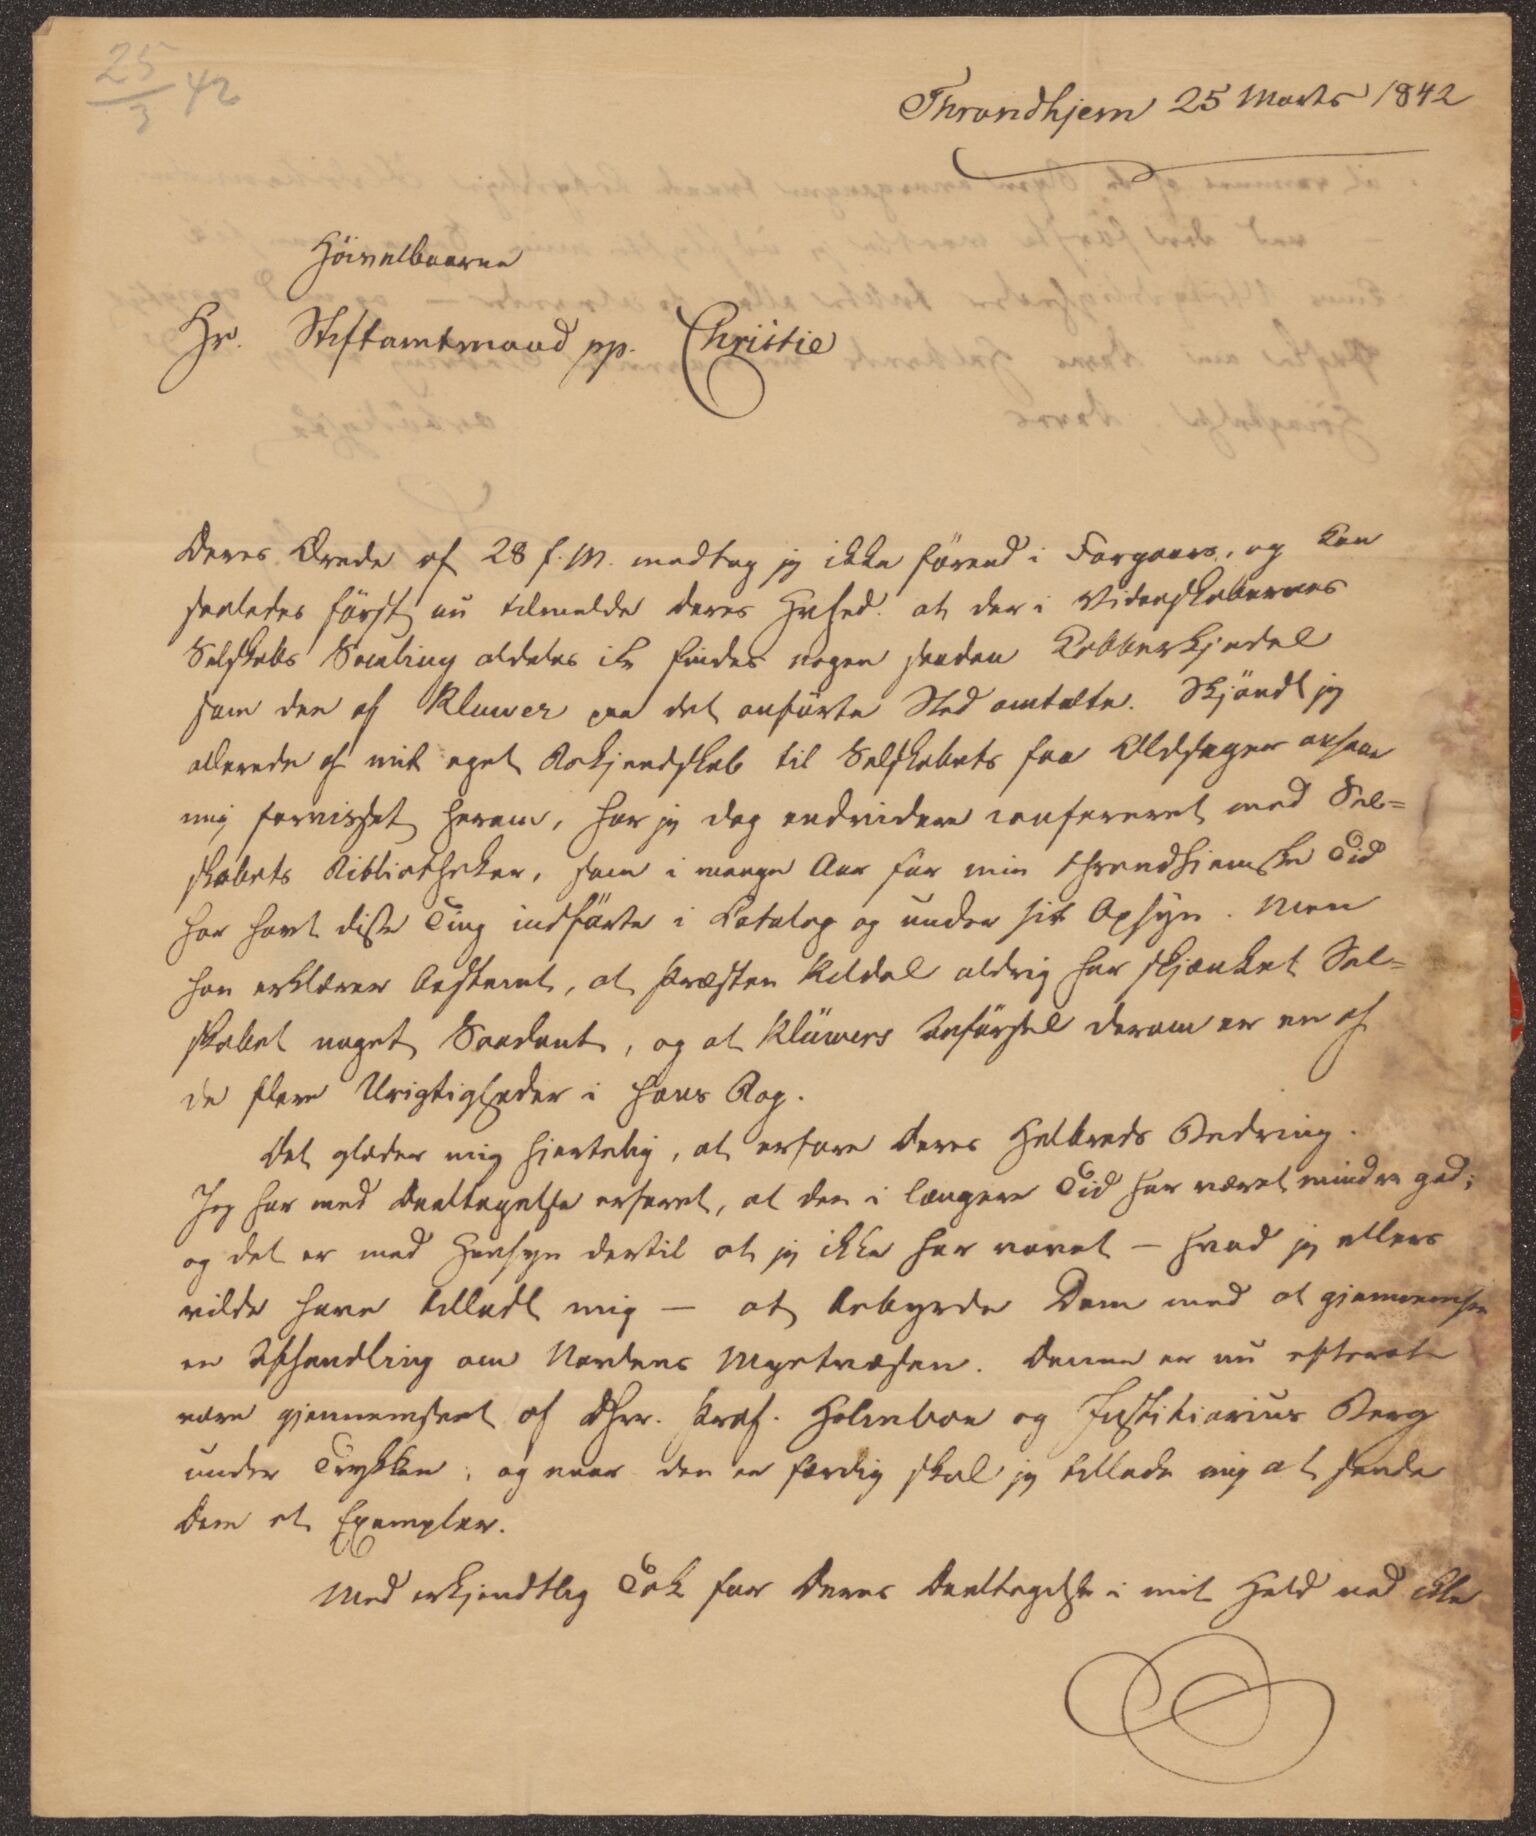 25/3 42
Throndhjem 25 Marts 1842
Höivelbaarne
Hr. Stiftamtmand pp. Christie
Deres Ærede af 28 f. M. modtog jeg ikke förend i Forgaars, og kan
saaledes först nu tilmelde Deres Höihed. at der i Videnskabernes
Selskabs Samling aldeles ikke findes nogen saadan Kobberkjedel
som den af Kluwer paa det anförte Sted omtalte. Skjöndt jeg
allerede af mit eget Bekjendskab til Selskabets faa Oldsager ansaae
mig forvisset herom, har jeg dog endvidere confereret med Sel=
skabets Bibliotheker, som i mange Aar för min throndhiemske Tid
har havt disse Ting indförte i Catalog og under sit Opsyn. Men
han erklærer bestemt, at Præsten Kildal aldrig har skjænket Sel=
skabet noget Saadant, og at Klüwers Anförsel derom er en af
de flere Urigtigheder i hans Bog.
Det glæder mig hjertelig, at erfare Deres Helbreds Bedring.
Jeg har med Deeltagelse erfaret, at den i længere Tid har været mindre god;
og det er med Hensyn dertil at jeg ikke har vovet – hvad jeg ellers
vilde have tilladt mig – at bebyrde Dem med at gjennemsee
en Afhandling om Nordens Myntvæsen. Denne er nu efter at
være gjennemseet af DHrr. Prof. Holmboe og Justitiarius Berg
under Trykken, og naar den er færdig skal jeg tillade mig at sende
Dem et Exemplar.
Med erkjendtlig Tak for Deres Deeltagelse i mit Held ved ikke